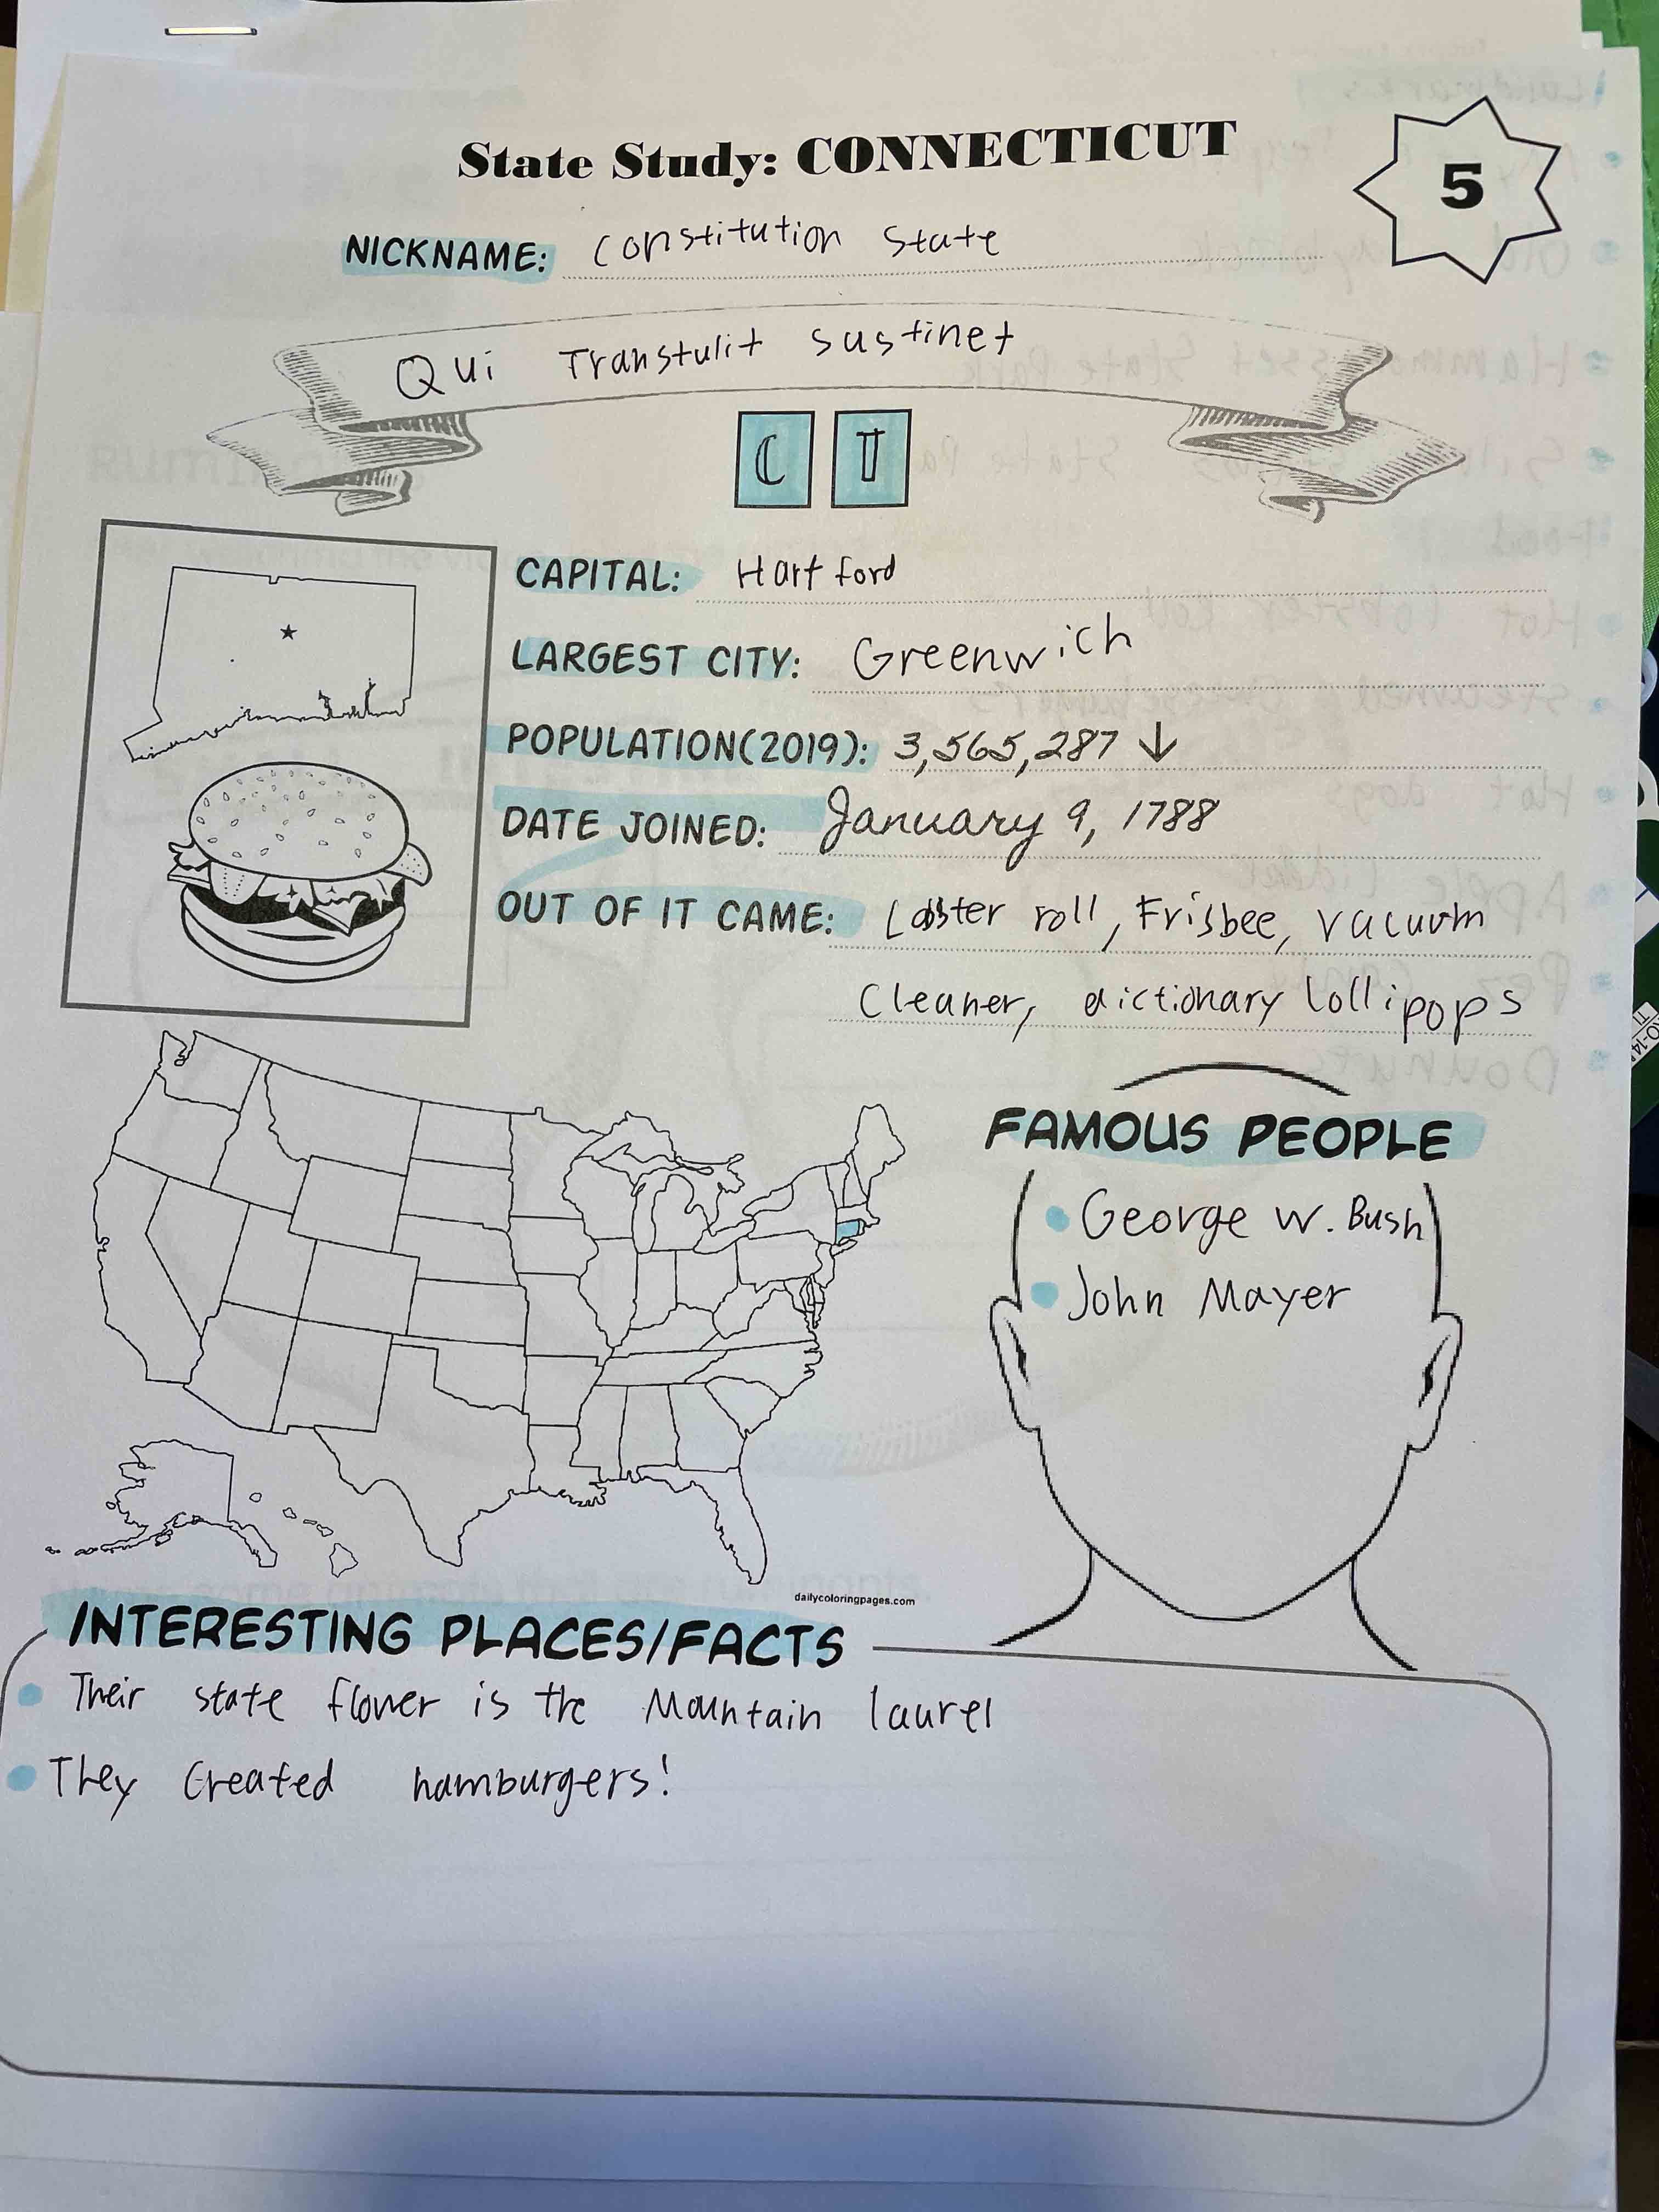 State Study: CONNECTICUT
5
NICKNAME: Constitution State
Qui Transtulit sustinet
C T
CAPITAL: Hartford
LARGEST CITY: Greenwich
POPULATION(2019): 3,565,287 ↓
DATE JOINED: January 9, 1788
OUT OF IT CAME: Lobster roll, Frisbee, vacuum
Cleaner, dictionary lollipops
FAMOUS PEOPLE
• George W. Bush
• John Mayer
dailycoloringpages.com
INTERESTING PLACES/FACTS
• Their state flower is the Mountain laurel
• They Created hamburgers!